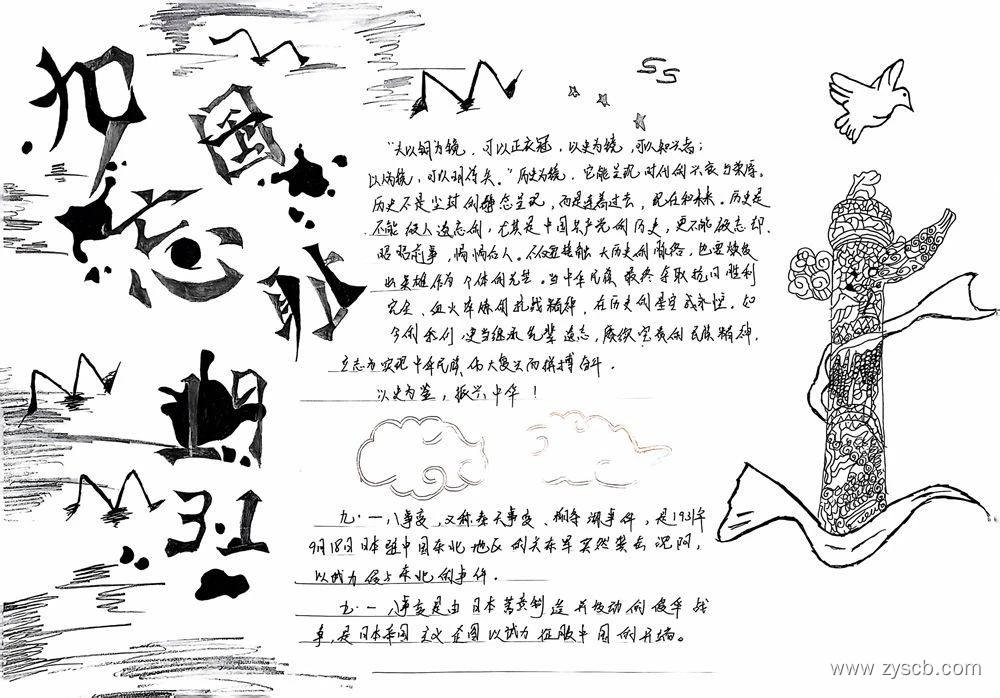 勿忘国耻
SS
“夫以铜为镜，可以正衣冠，以史为镜，可以知兴替；
以人为镜，可以明得失。”历史为镜，它能呈现时代的兴衰与荣辱。
历史不是尘封的静态呈现，而是连着过去、现在和未来。历史是
不能被人遗忘的，尤其是中国共产党的历史，更不能被忘却。
昭昭前事，惕惕后人。不仅要接触大历史的脉络，也要焕发
出英雄作为个体的光芒。当中华民族最终夺取抗日胜利
完全、血火淬炼的抗战精神，在历史的星空成永恒。如
今的我们更当继承先辈遗志，赓续宝贵的民族精神，
立志为实现中华民族伟大复兴而拼搏奋斗。
以史为鉴，振兴中华！
九·一八事变，又称奉天事变、柳条湖事件，是1931年
9月18日日本驻中国东北地区的关东军突然袭击沈阳，
以武力侵占东北的事件。
九·一八事变是由日本蓄意制造并发动的侵华战
争，是日本帝国主义企图以武力征服中国的开端。
www.zyscb.com